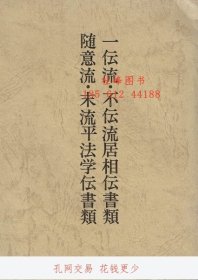 一伝流·不伝流居相伝書類
随意流·未流平法学伝書類
孔网交易 花钱更少